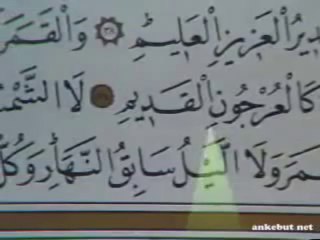 ـدِيرُ الْعَزِيزِ الْعَلِيمِ ﴿٣٨﴾ وَالْقَمَرَ
كَالْعُرْجُونِ الْقَدِيمِ ۝ لَا الشَّمْسُ
ـمَرَ وَلَا الَّيْلُ سَابِقُ النَّهَارِ وَكُلٌّ
ankebut net